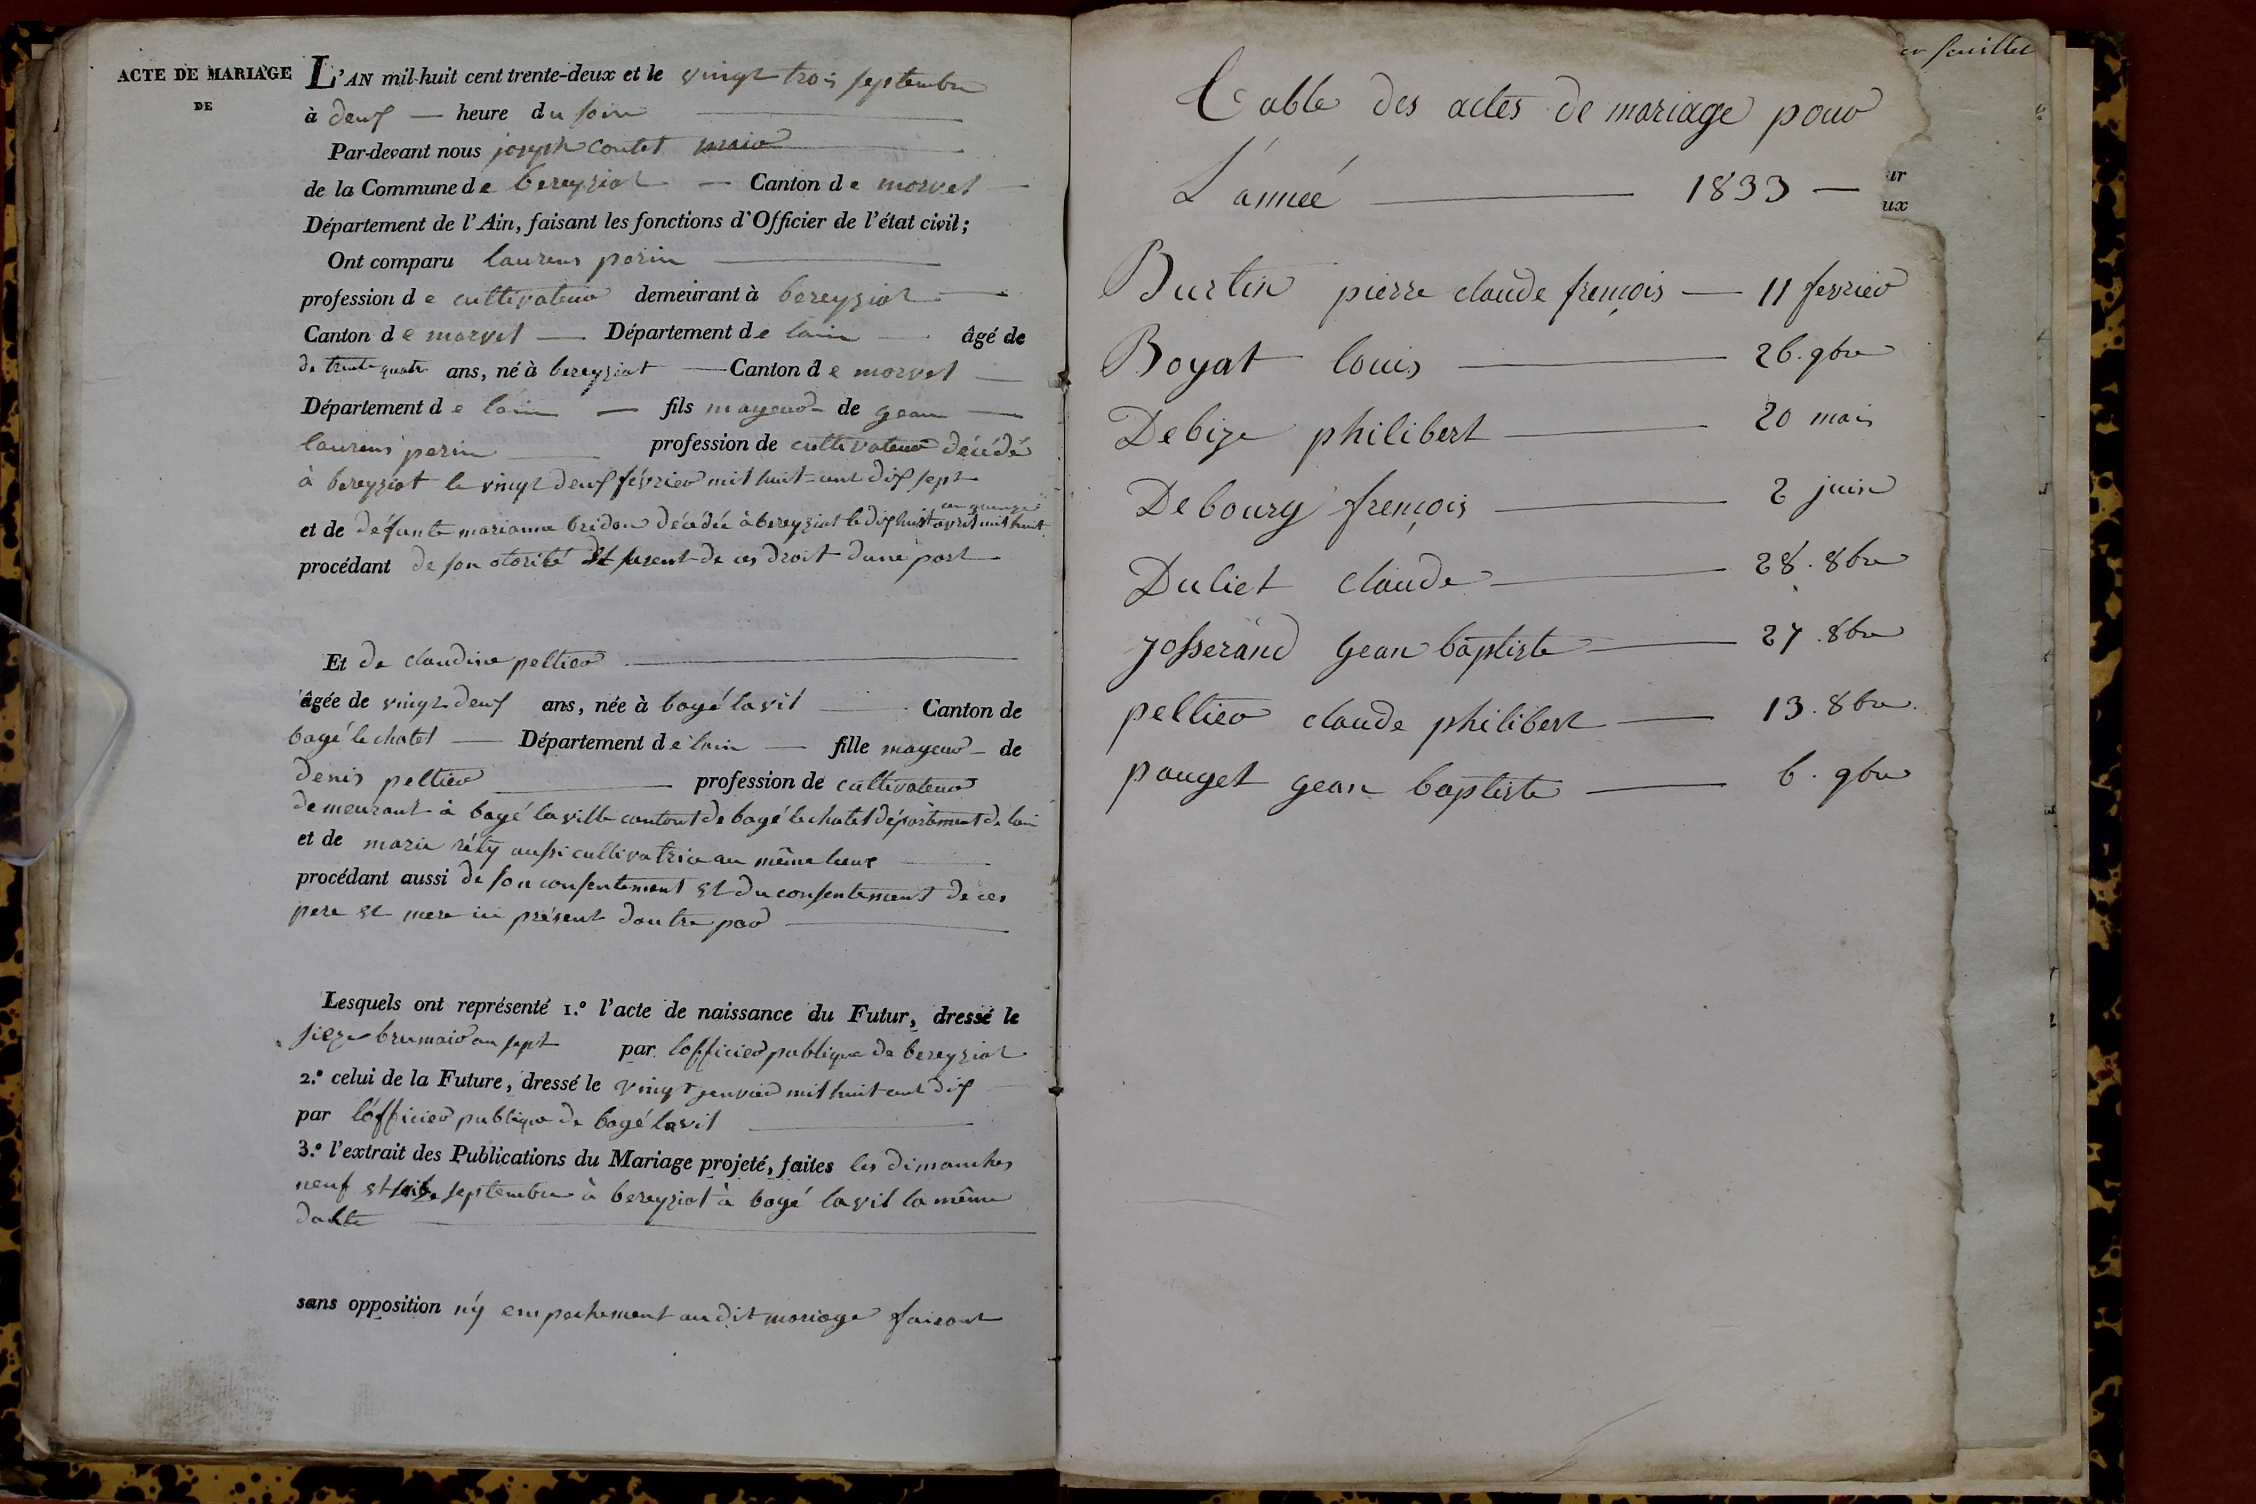 ACTE DE MARIAGE
DE
L'AN mil-huit cent trente-deux et le vingt trois septembre
à deux — heure du soir
Par-devant nous joseph contet maire
de la Commune de bereyziat — Canton de morvel
Département de l'Ain, faisant les fonctions d'Officier de l'état civil;
Ont comparu laurens perin
profession de cultivateur demeurant à bereyziat
Canton de morvel — Département de lain — âgé de
de trente quatre ans, né à bereyziat — Canton de morvel
Département de lain — fils mageur de gean
laurens perin profession de cultivateur décédé
à bereyziat le vingt deux février mil huit cent dix sept
et de défunte marianne bridon décédée à bereyziat le dix huit avril mil huit
procédant de son otorité et jusent de ces droit dune part
Et de claudine peltier
âgée de vingt deux ans, née à bagé lavil Canton de
bagé le chatel — Département de lain — fille mageur de
denis peltier profession de cultivateur
demeurant à bagé la ville cantont de bagé le chatel département de lain
et de marie réty aussi cultivatrice au même lieux
procédant aussi de son consentement et du consentement de ces
pere et mere ici présent dautre par
Lesquels ont représenté 1.º l'acte de naissance du Futur, dressé le
sieze brumaire an sept par lofficier publique de bereyziat
2.º celui de la Future, dressé le vingt janvier mil huit cent dix
par lófficier publique de bagé lavil
3.º l'extrait des Publications du Mariage projeté, faites les dimanches
neuf et seize septembre à bereyziat à bagé lavil la même
datte
sans opposition n'y empechement audit mariage faisant
er feuillet
Table des actes de mariage pour
L'année — 1833 —
ur
ux
Burtin pierre claude françois — 11 fevrier
Boyat louis — 26. 9bre
Debize philibert — 20 mais
Deboury françois — 2 juin
Duliet claude — 28. 8bre
Josserand gean baptiste — 27. 8bre
peltier claude philibert — 13. 8bre
pouget gean baptiste — 6. 9bre